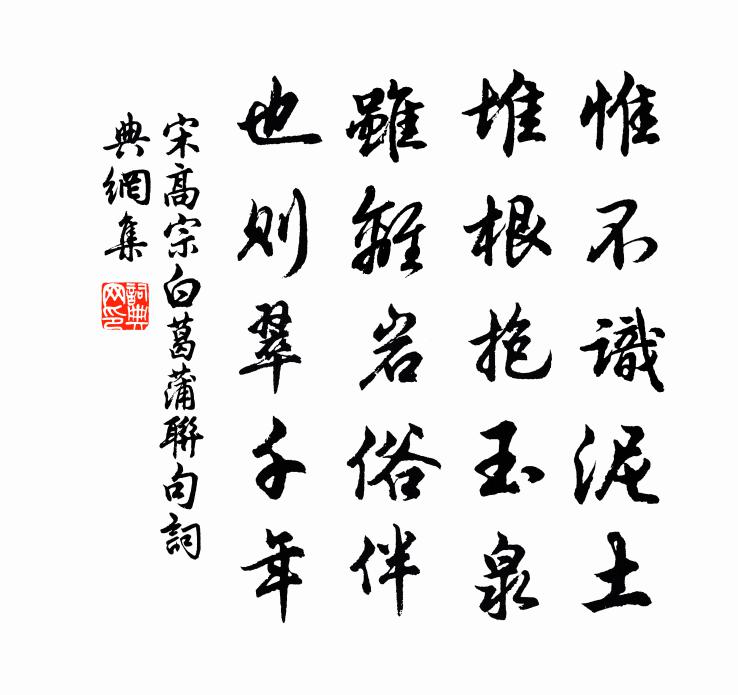 惟不識泥土
堆根抱玉泉
雖離岩俗伴
也則翠千年
宋高宗白葛蒲聯句詞
典網集
詞典
网印